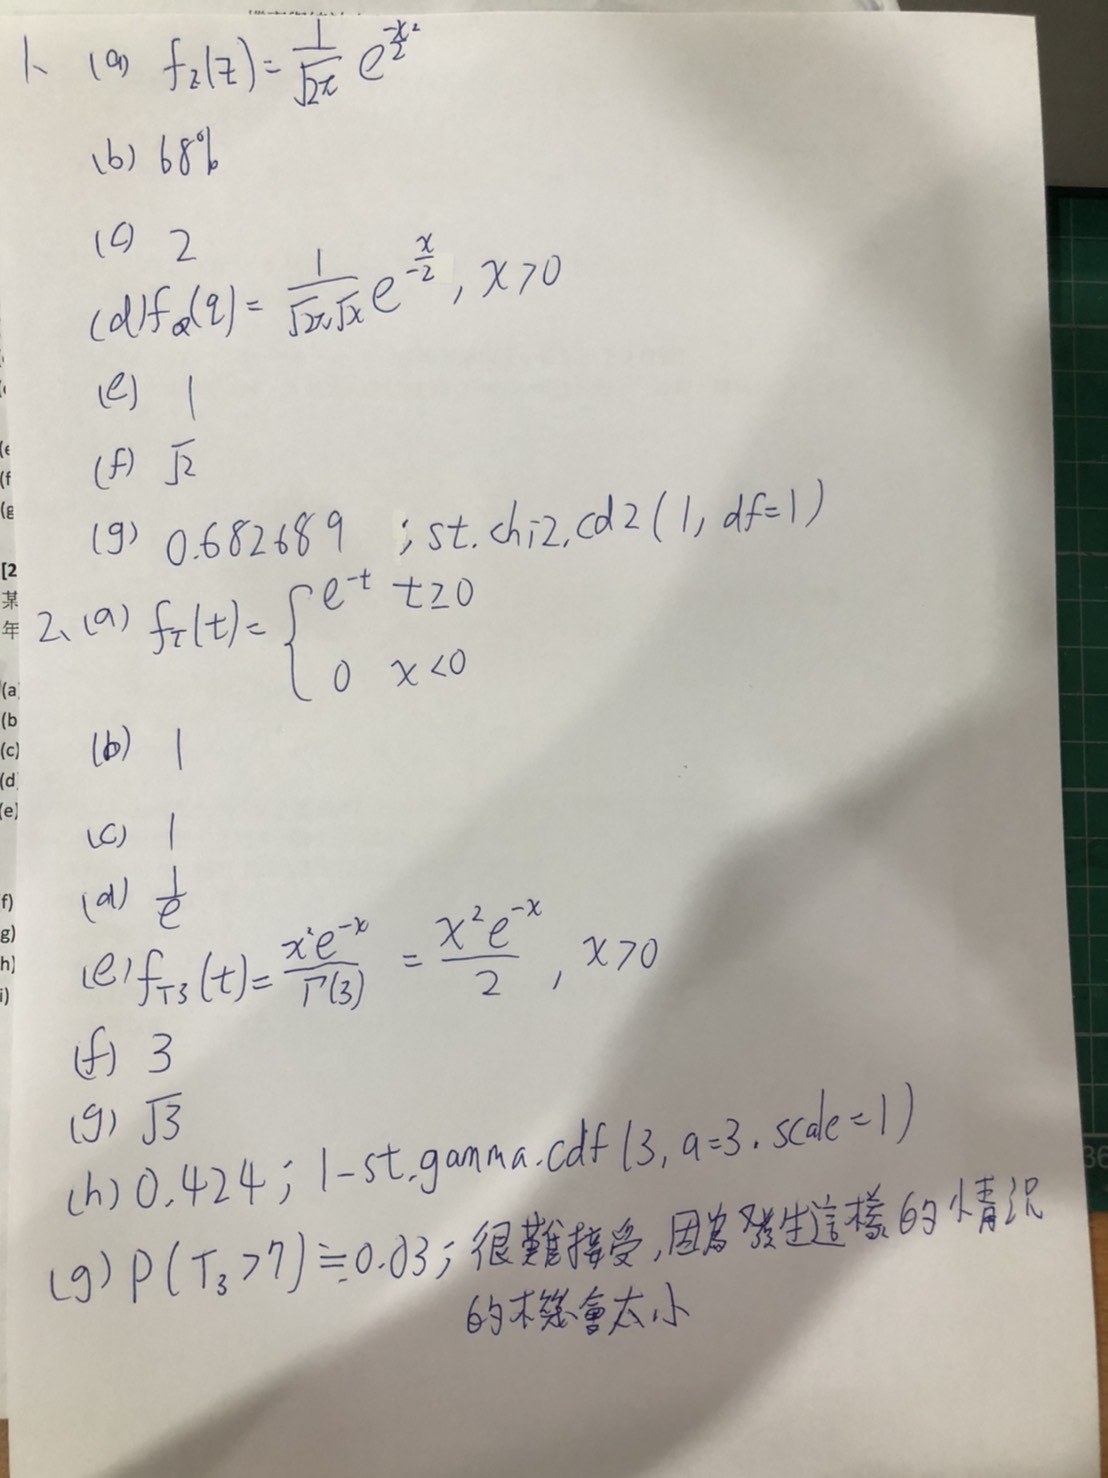 1、(a) f_Z(z) = \frac{1}{\sqrt{2π}} e^{-\frac{x^2}{2}}
(b) 68%
(c) 2
(d) f_Q(q) = \frac{1}{\sqrt{2π}\sqrt{x}} e^{\frac{x}{-2}}, x>0
(e) 1
(f) √2
(g) 0.682689 ; st.chi2.cd2(1, df=1)
2、(a) f_T(t) = { e^{-t} t≥0
0 x<0
(b) 1
(c) 1
(d) \frac{1}{e}
(e) f_{T3}(t) = \frac{x^2e^{-x}}{Γ(3)} = \frac{x^2e^{-x}}{2}, x>0
(f) 3
(g) √3
(h) 0.424; 1-st.gamma.cdf(3, a=3. scale=1)
(g) P(T_3>7)≒0.03; 很難接受,因為發生這樣的情況
的機會太小
[2
某
年
(a
(b
(c)
(d
(e)
f)
g)
h)
i)
36